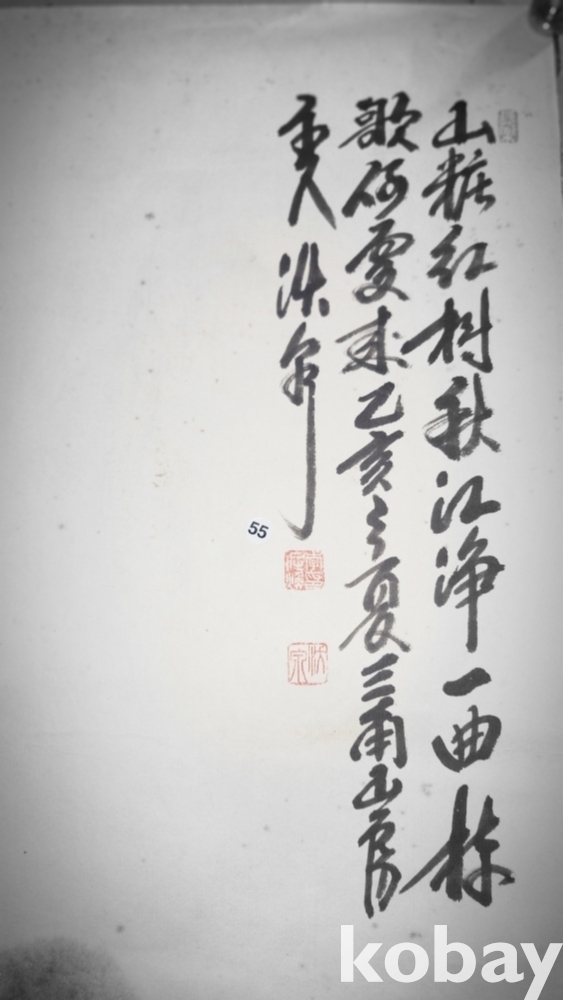 山粧紅樹秋江淨一曲
歌何處來乙亥之夏三甫山房
主人
55
kobay